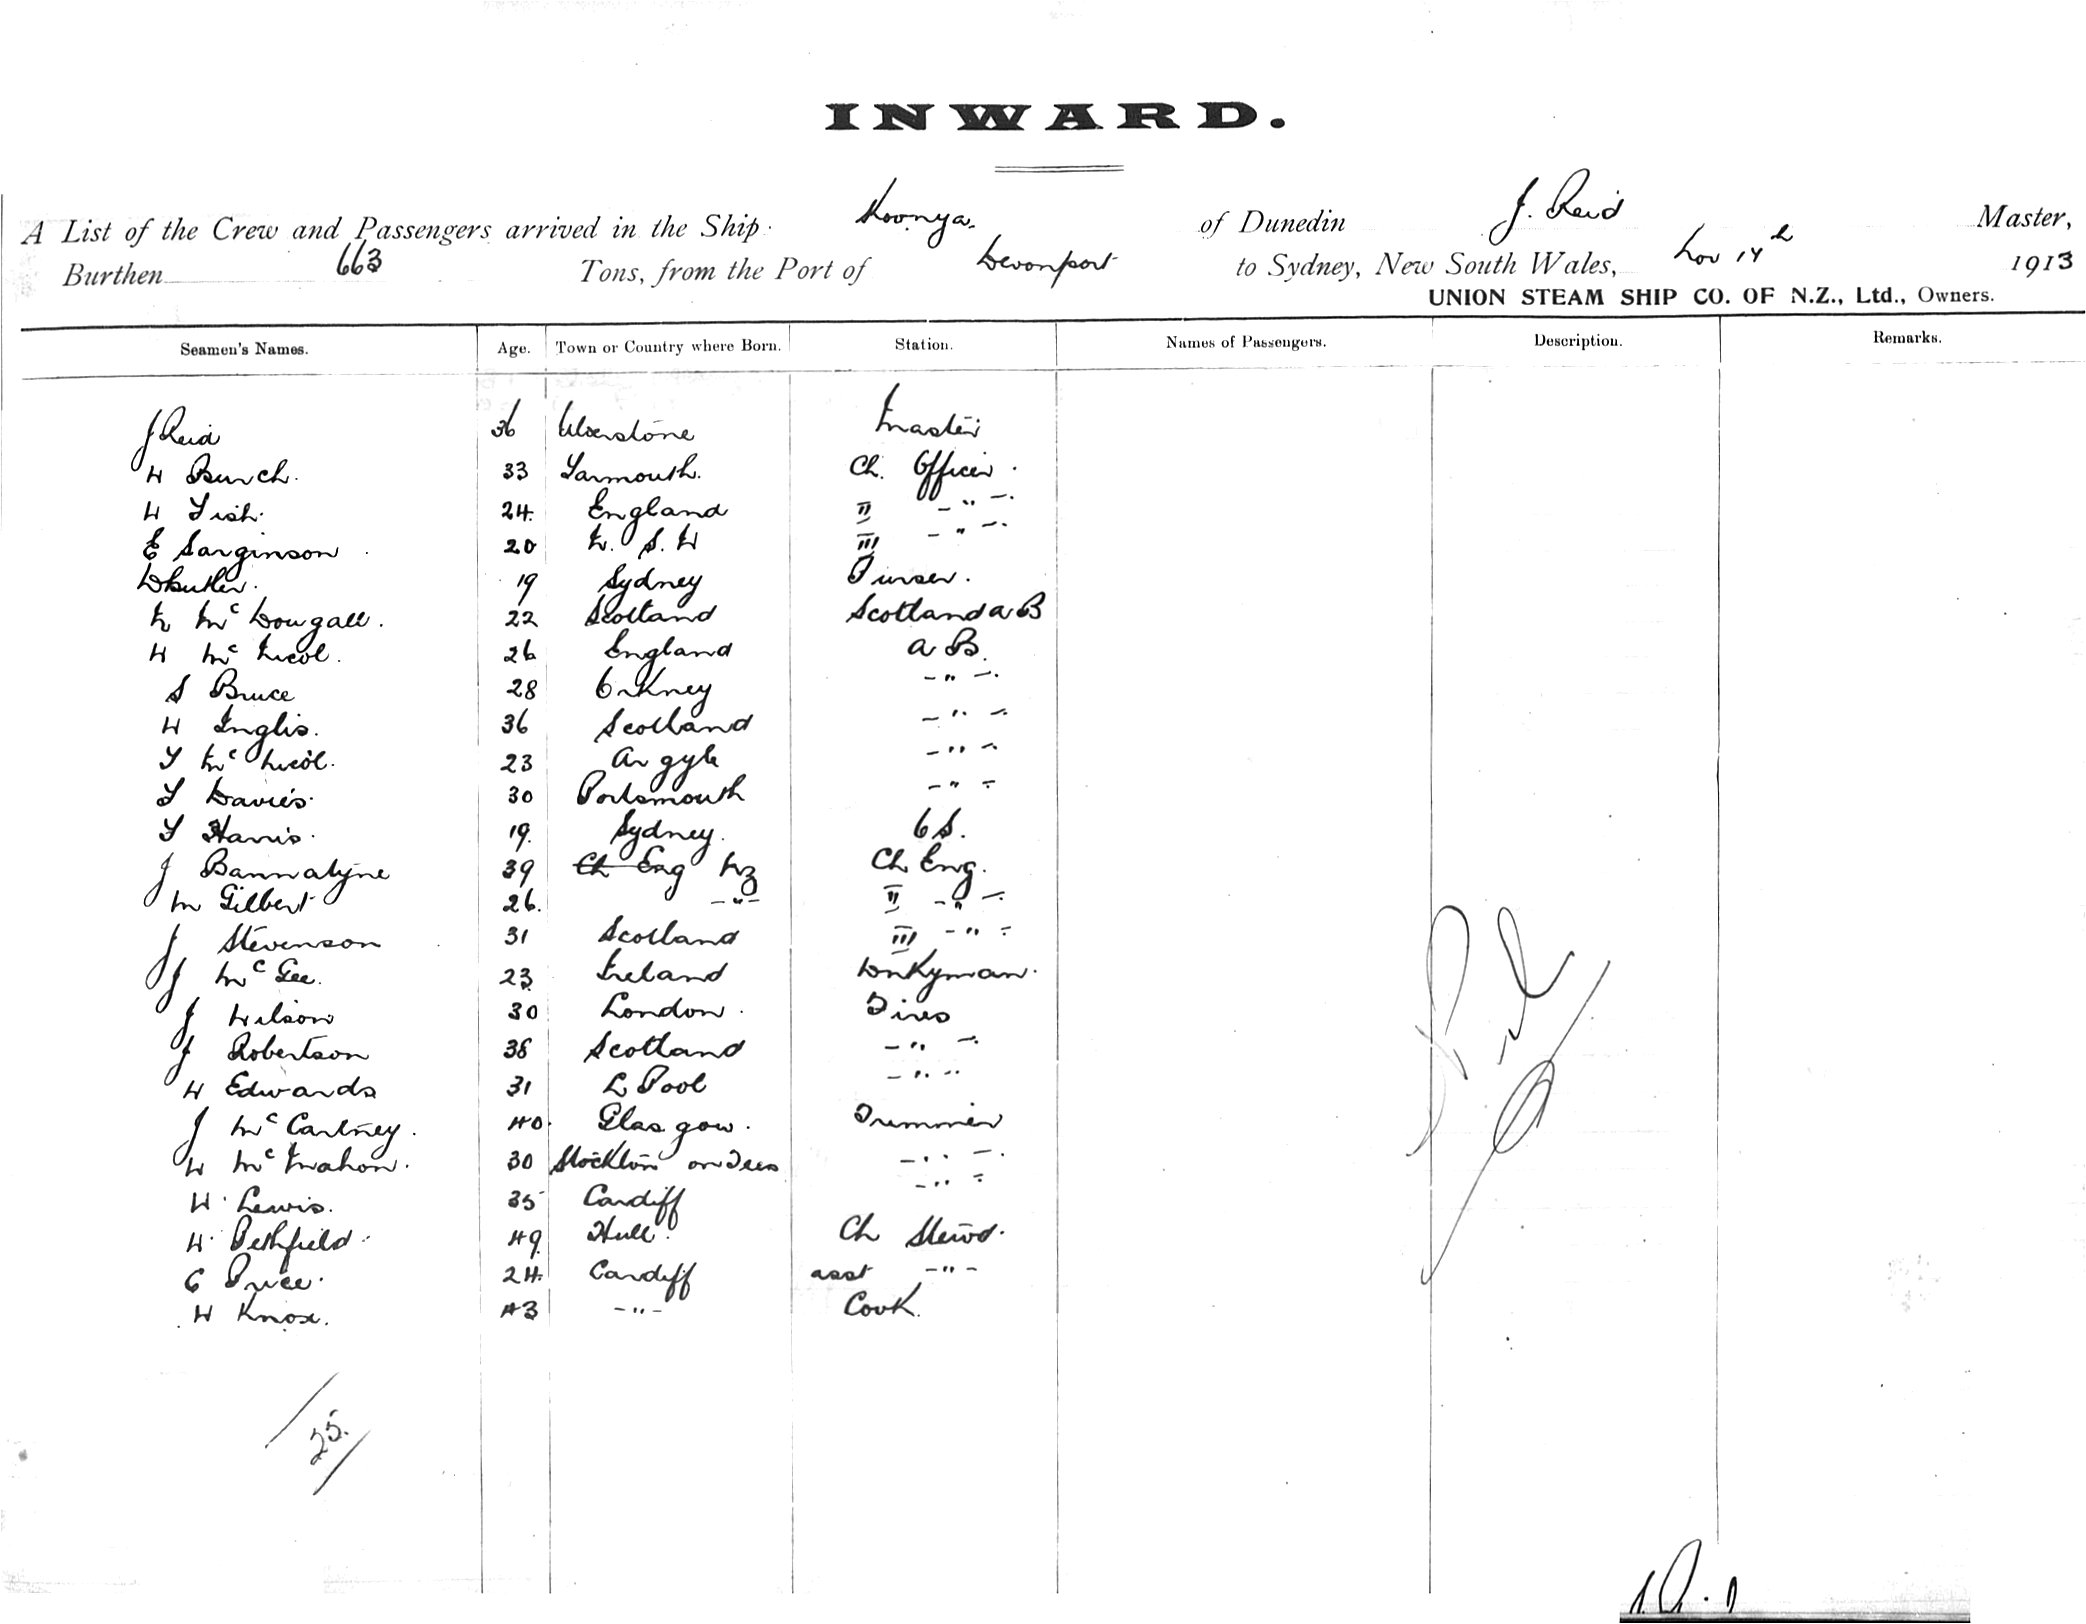 INWARD.
A List of the Crew and Passengers arrived in the Ship Koonya. of Dunedin J. Reid Master,
Burthen 663 Tons, from the Port of Devonport to Sydney, New South Wales, Nov 14th 1913
UNION STEAM SHIP CO. OF N.Z., Ltd., Owners.
Seamen's Names. Age. Town or Country where Born. Station. Names of Passengers. Description. Remarks.
J Reid 36 Ulverstone Master
H Burch. 33 Yarmouth. Ch. Officer.
H Fish. 24. England II - " -.
E Sarginson 20 N. S. W III - " -.
Butler. 19 Sydney Purser.
N McDougall. 22 Scotland Scotland A B
H McNicol. 26 England A B.
S Bruce 28 Orkney - " -.
W Inglis. 36 Scotland - " -
T McNicol. 23 Argyle - " -
T Davies. 30 Portsmouth - " -
T Harris. 19. Sydney. O S.
J Bannatyne 39 Ch Eng NZ Ch Eng.
M Gilbert 26. - " - II - " -
J Stevenson 31 Scotland III - " -
J McGee. 23 Ireland Donkyman.
J Wilson 30 London. Fires
J Robertson 38 Scotland - " -
W Edwards 31 L Pool - " -
J McCartney. 40. Glasgow. Trimmer
W McMahon. 30 Stockton on Tees - " -
W. Lewis. 35 Cardiff - " -
W. Pethfield. 49 Hull. Ch Stewd.
C Price. 24. Cardiff asst - " -
W Knox. 43 - " - Cook.
25.